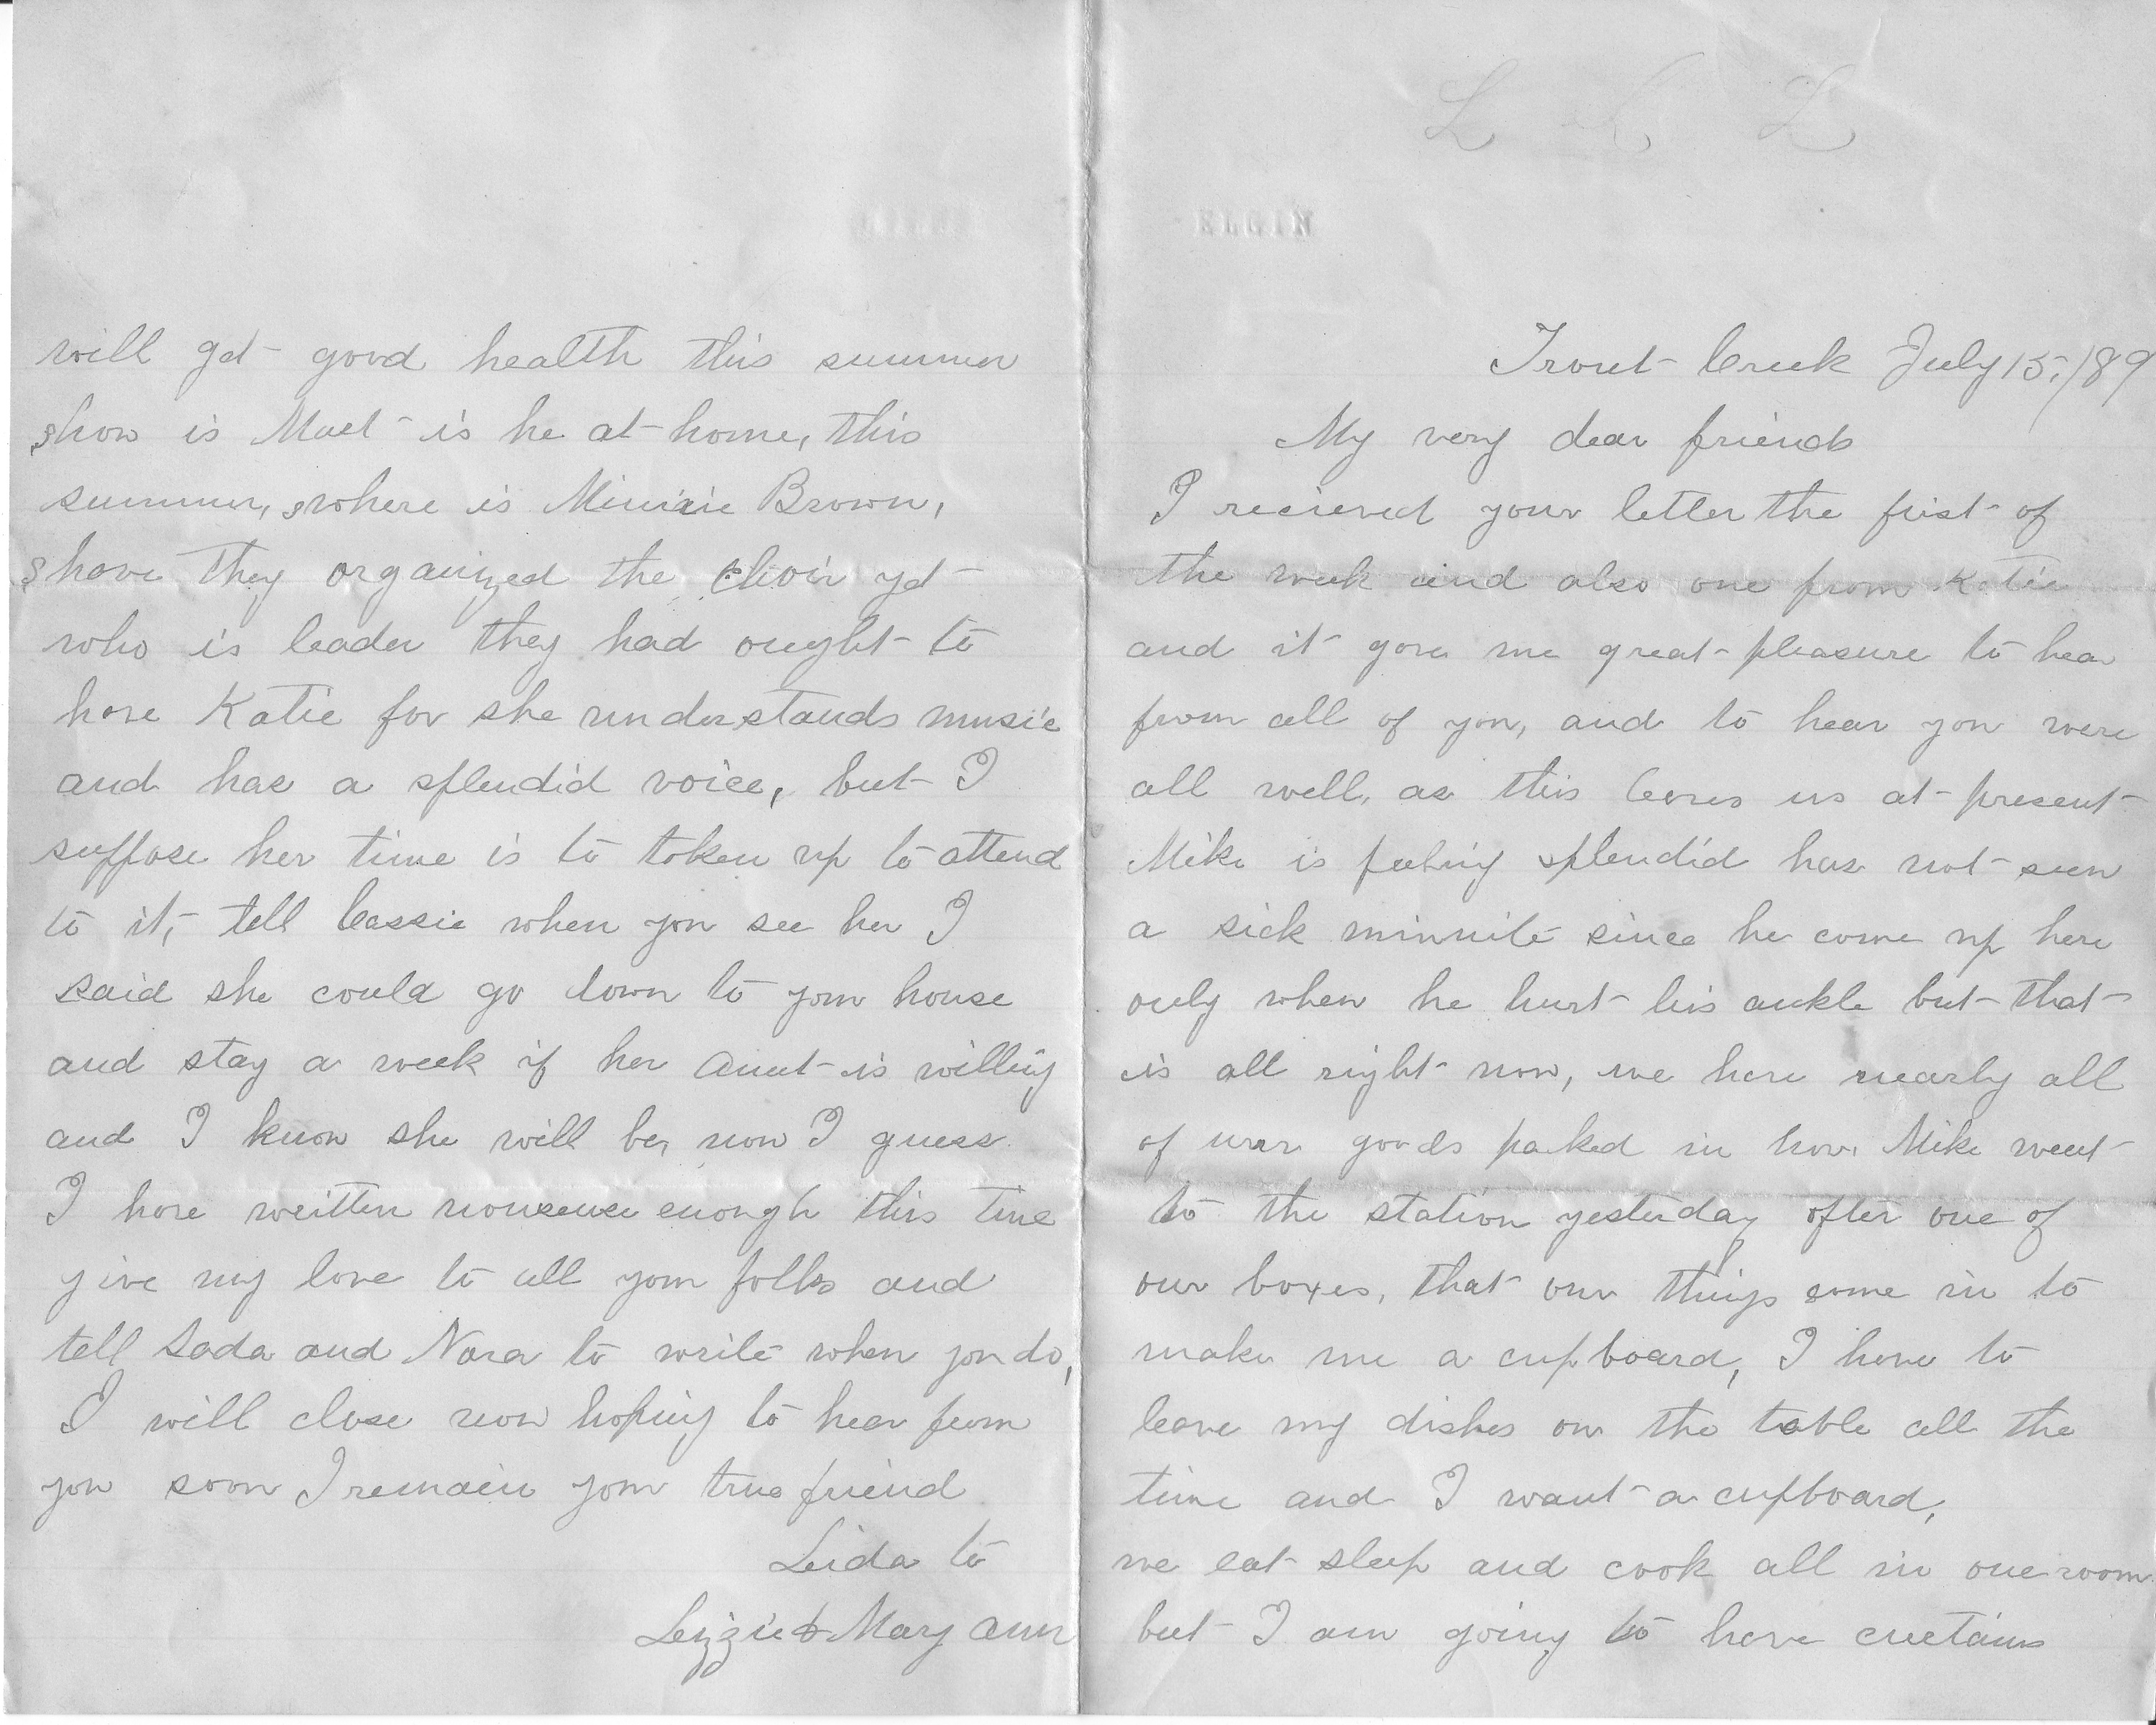 L L L
ELGIN
Trout Creek July 15, /89
My very dear friends
I recieved your letter the first of
the week and also one from Katie
and it gave me great pleasure to hear
from all of you, and to hear you were
all well, as this leaves us at present
Mike is feeling splendid has not seen
a sick minnite since he come up here
only when he hurt his ankle but that
is all right now, we have nearly all
of our goods packed in now. Mike went
to the station yesterday after one of
our boxes, that our things come in to
make me a cupboard, I have to
leave my dishes on the table all the
time and I want a cupboard,
we eat sleep and cook all in one room
but I am going to have curtains
will get good health this summer
how is Mart is he at home, this
summer, where is Minnie Brown,
have they organized the choir yet
who is leader they had ought to
have Katie for she understands music
and has a splendid voice, but I
suppose her time is to taken up to attend
to it, tell Cassie when you see her I
said she could go down to your house
and stay a week if her Aunt is willing
and I know she will be, now I guess
I have written nonsense enough this time
give my love to all your folks and
tell Sada and Nora to write when you do,
I will close now hoping to hear from
you soon I remain your true friend
Leida to
Lizzie & Mary Ann